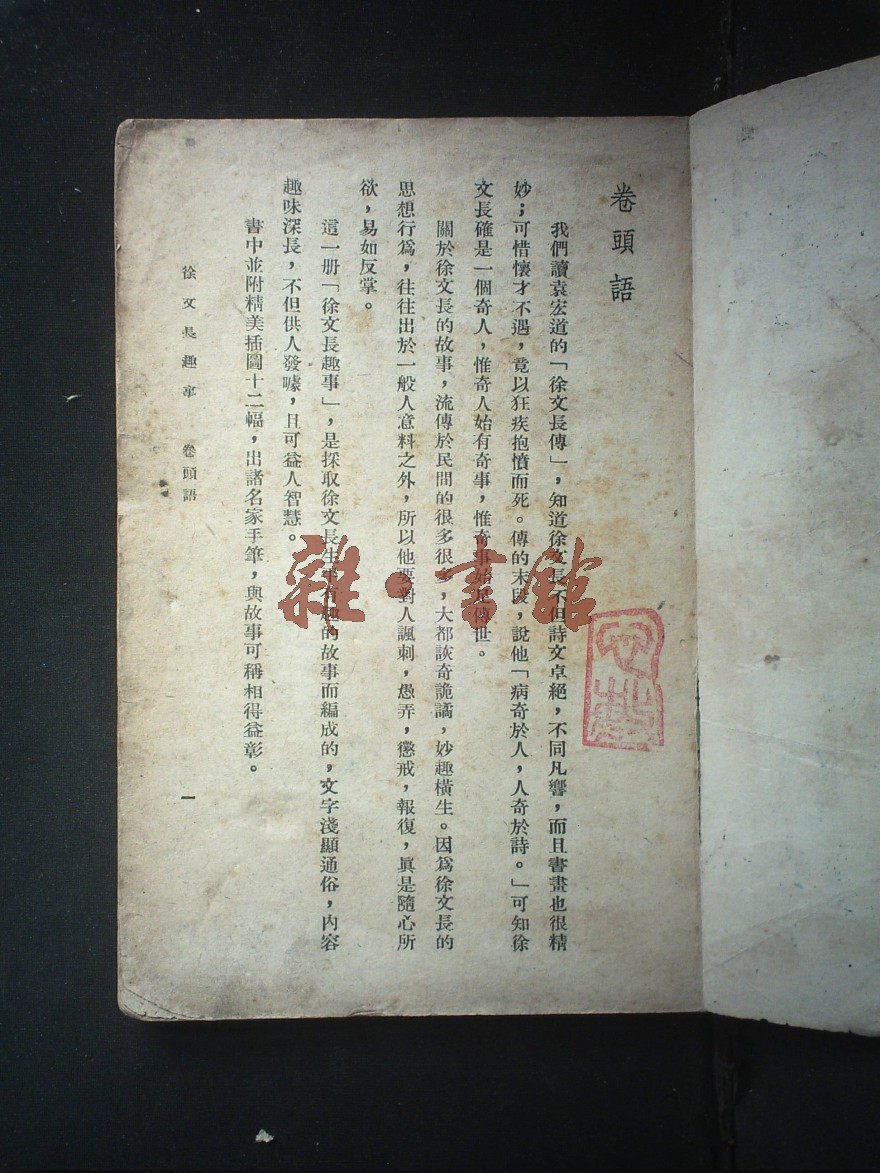 卷頭語
我們讀袁宏道的「徐文長傳」，知道徐文長不但詩文卓絕，不同凡響，而且書畫也很精
妙；可惜懷才不遇，竟以狂疾抱憤而死。傳的末段，說他「病奇於人，人奇於詩。」可知徐
文長確是一個奇人，惟奇人始有奇事，惟奇事始足傳世。
關於徐文長的故事，流傳於民間的很多很多，大都詼奇詭譎，妙趣橫生。因爲徐文長的
思想行爲，往往出於一般人意料之外，所以他要對人諷刺，愚弄，懲戒，報復，眞是隨心所
欲，易如反掌。
這一册「徐文長趣事」，是採取徐文長生平有趣的故事而編成的，文字淺顯通俗，內容
趣味深長，不但供人發噱，且可益人智慧。
書中並附精美插圖十二幅，出諸名家手筆，與故事可稱相得益彰。
徐文長趣事 卷頭語 一
雜·書館